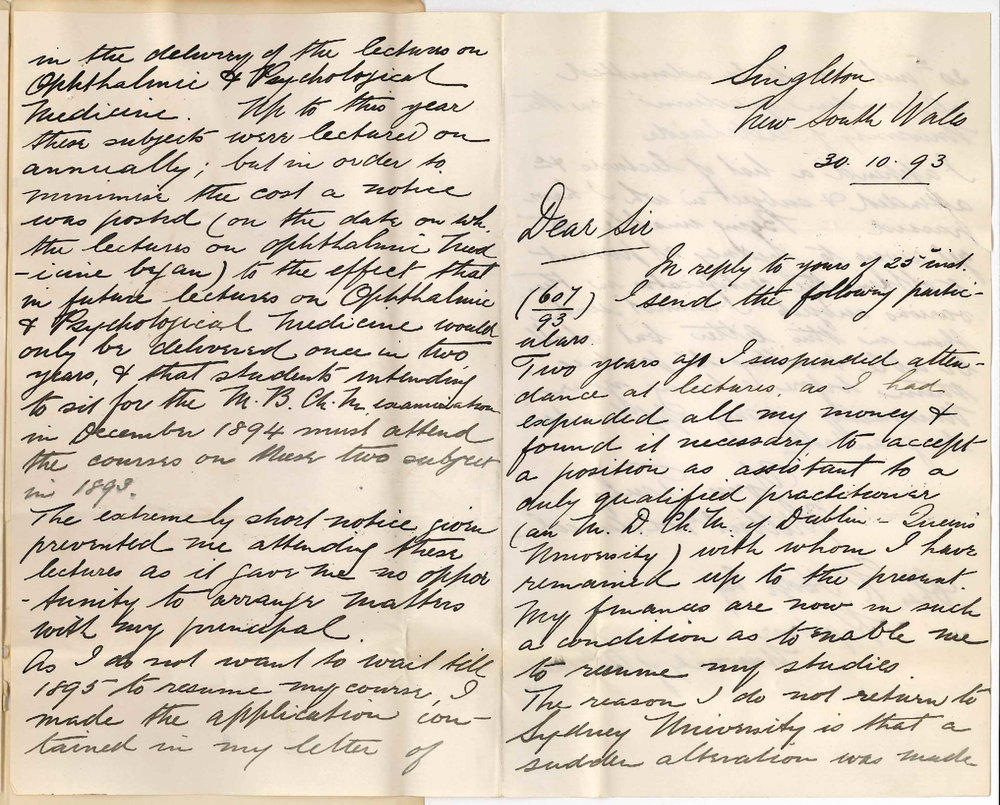 Singleton
New South Wales
30. 10. 93
Dear Sir
In reply to yours of 25th inst.
(607/93) I send the following partic-
ulars.
Two years ago I suspended atten-
dance at lectures, as I had
expended all my money &
found it necessary to accept
a position as assistant to a
duly qualified practitioner
(an M. D. Ch. M. of Dublin - Queens
University) with whom I have
remained up to the present
My finances are now in such
a condition as to enable me
to resume my studies
The reason I do not return to
Sydney University is that a
sudden alteration was made
in the delivery of the lectures on
Ophthalmic & Psychological
Medicine. Up to this year
these subjects were lectured on
annually; but in order to
minimise the cost a notice
was posted (on the date on wh.
the lectures on Ophthalmic Med
-icine began) to the effect that
in future lectures on Ophthalmic
& Psychological Medicine would
only be delivered once in two
years, & that students intending
to sit for the M. B. Ch. M. examination
in December 1894 must attend
the courses on these two subject
in 1893.
The extremely short notice given
prevented me attending these
lectures as it gave me no oppor
-tunity to arrange matters
with my principal.
As I do not want to wait till
1895 to resume my course, I
made the application con-
tained in my letter of